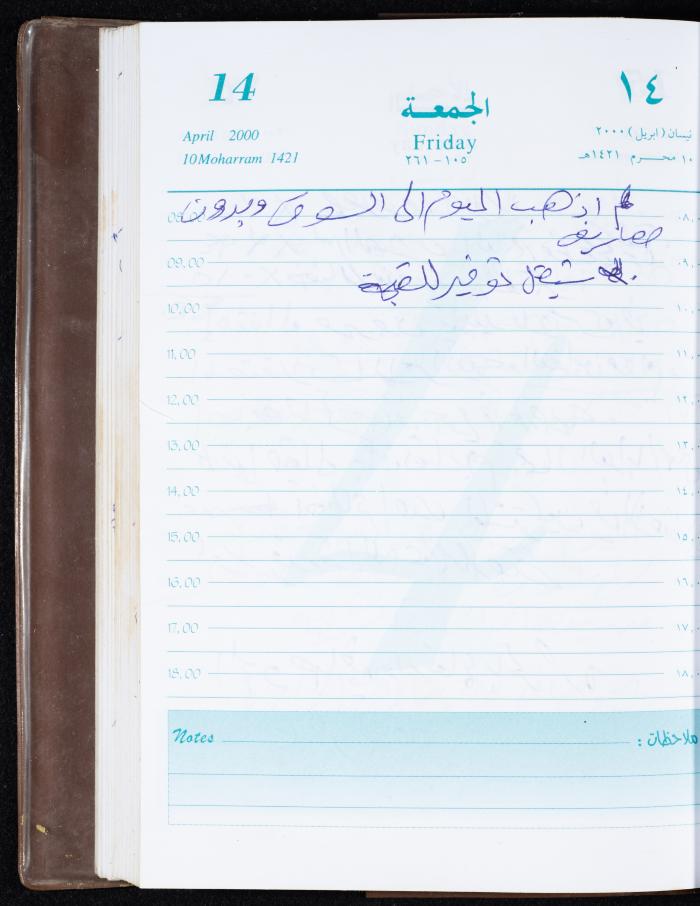 14
١٤
الجمعة
April 2000
Friday
نيسان (ابريل) ٢٠٠٠
10 Moharram 1421
٢٦١ – ١٠٥
١٠ محرم ١٤٢١هـ
لم اذهب اليوم الى السوق وبدون
08,00
٠٨,٠
مصاريف
09,00
٠٩,٠
توفير للقيمة
10,00
١٠,٠
11,00
١١,٠
12,00
١٢,٠
13,00
١٣,٠
14,00
١٤,٠
15,00
١٥,٠
16,00
١٦,٠
17,00
١٧,٠
18,00
١٨,٠
Notes
ملاحظات :